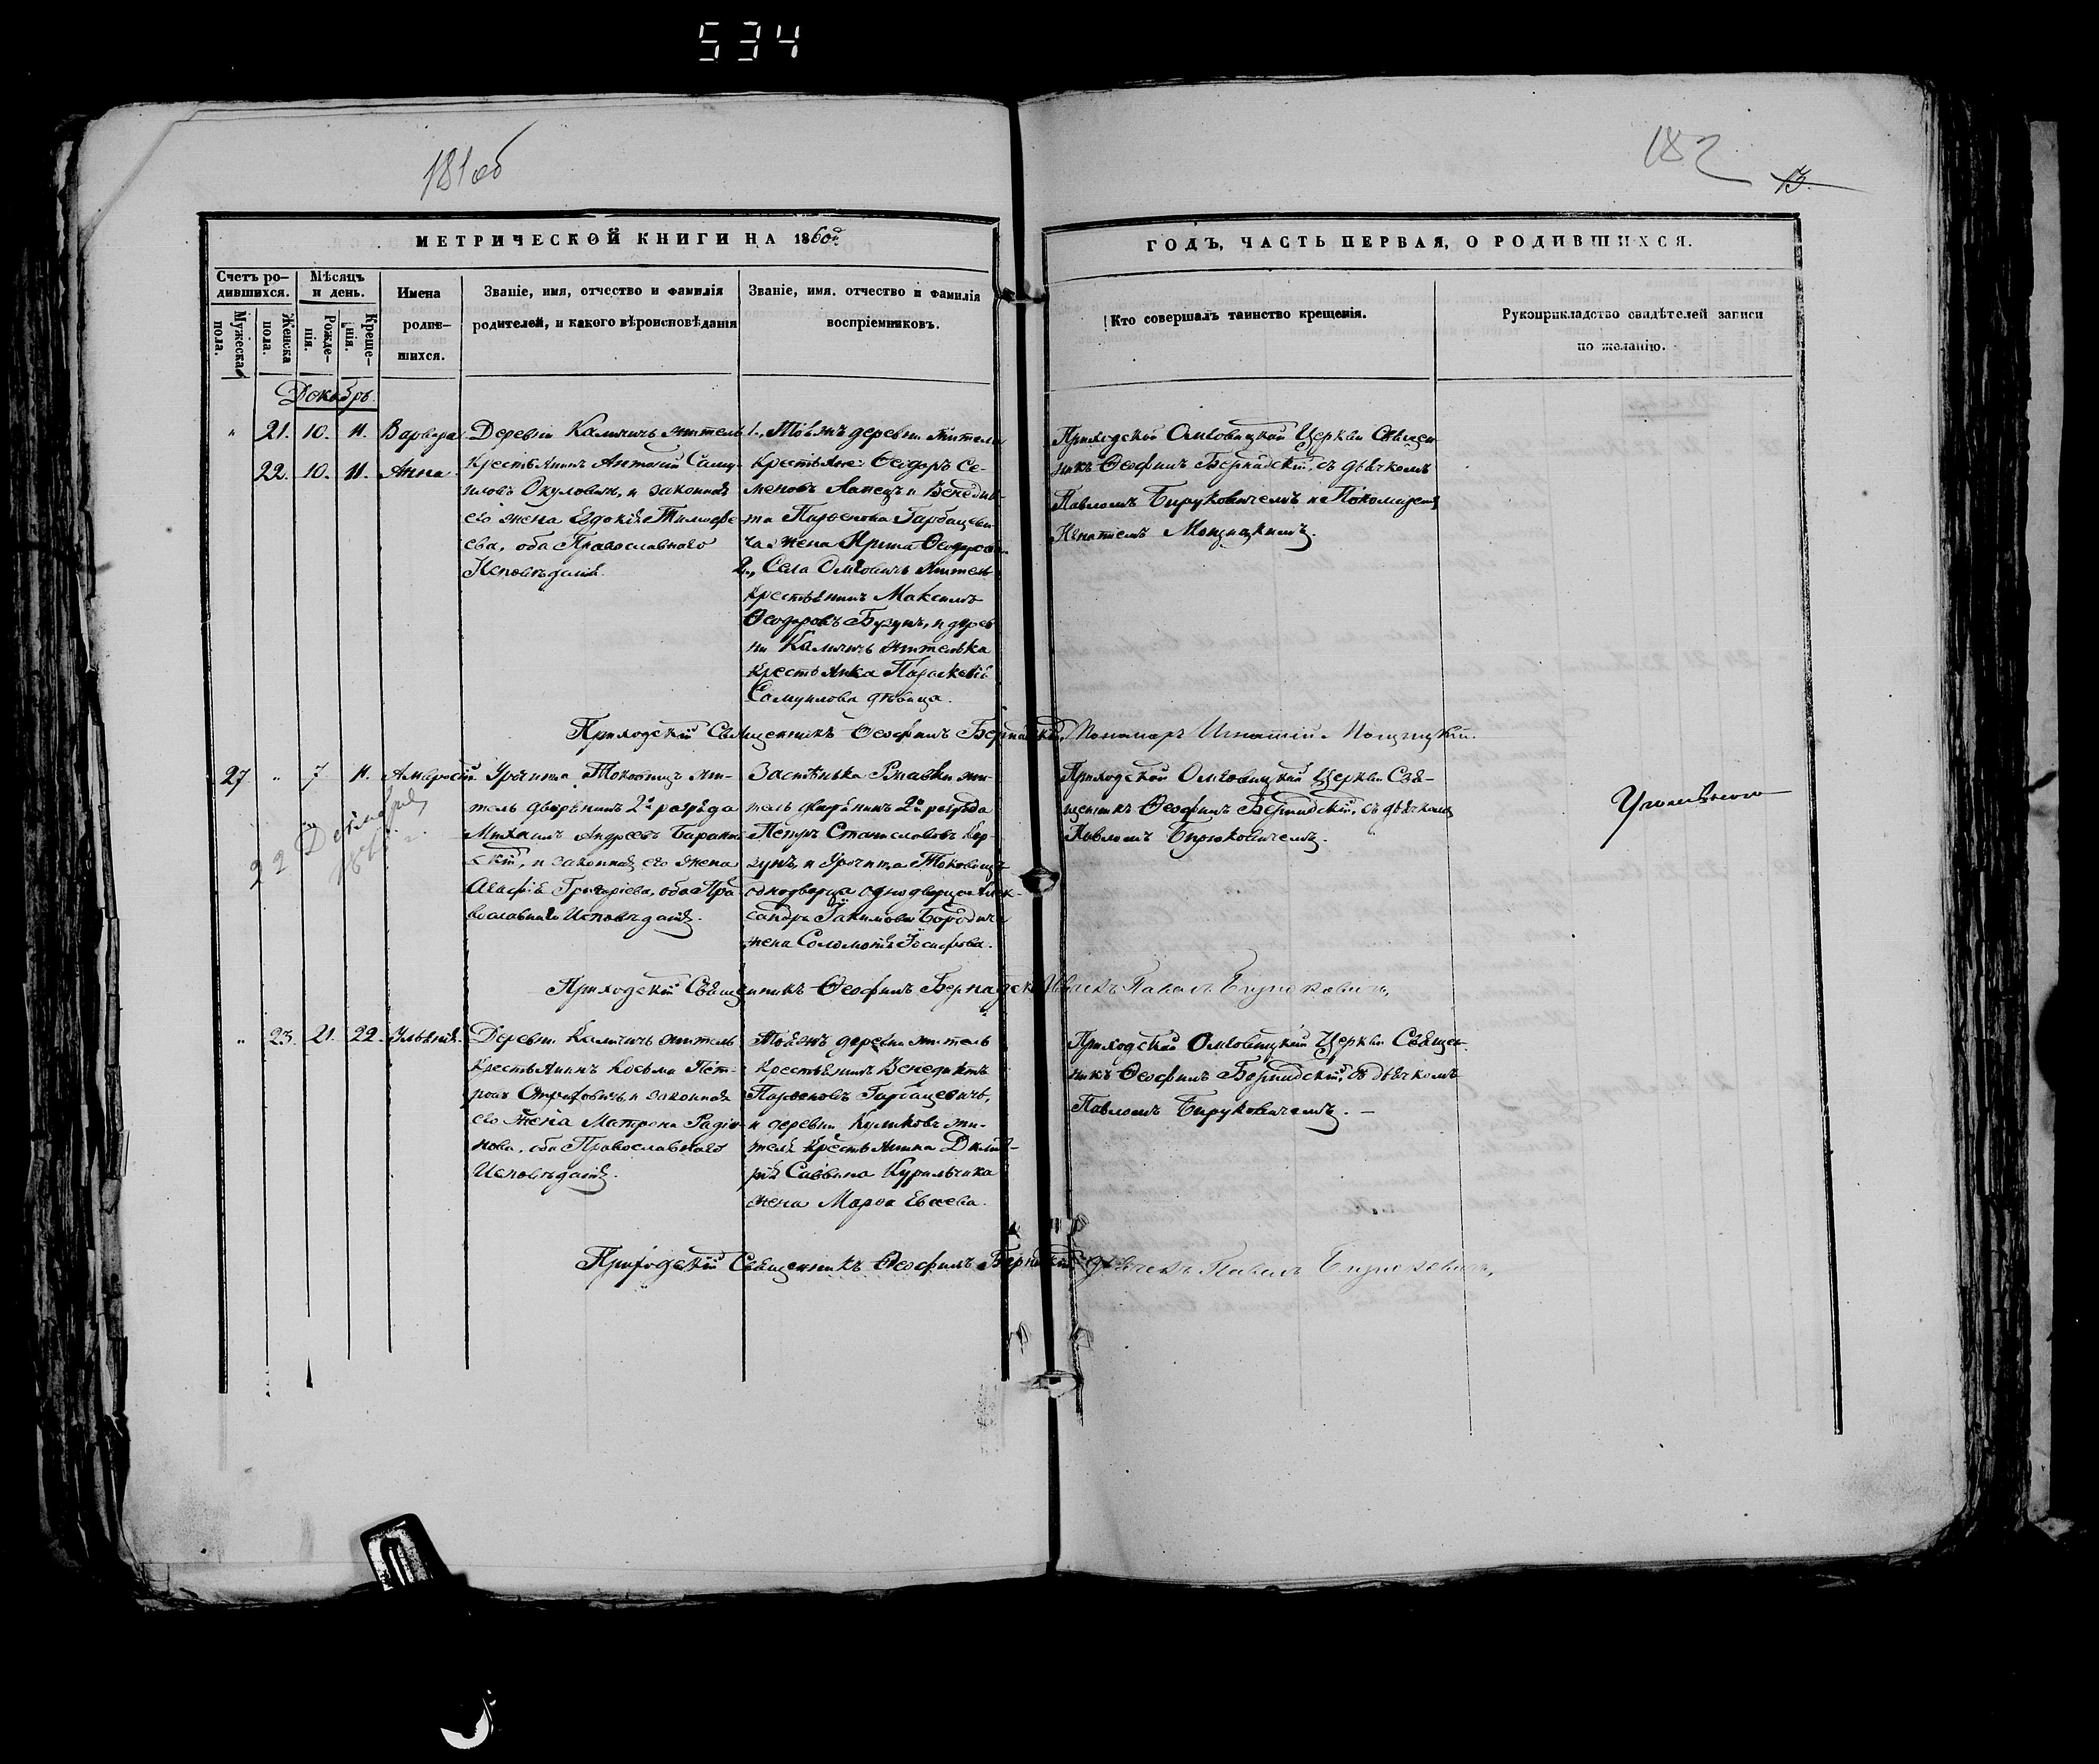 534
181 об
182
13.
МЕТРИЧЕСКОЙ КНИГИ НА 1860й
ГОДЪ, ЧАСТЬ ПЕРВАЯ, О РОДИВШИХСЯ.
Счетъ ро-
дившихся.
Мужеска
пола.
Женска
пола.
Мѣсяцъ
и день.
Рожде-
нія.
Креще-
нія.
Имена
родив-
шихся.
Званіе, имя, отчество и фамилія
родителей, и какого вѣроисповѣданія
Званіе, имя, отчество и фамилія
воспріемниковъ.
Кто совершалъ таинство крещенія.
Рукоприкладство свидѣтелей записи
по желанію.
Декабрь.
" 21. 10. 11. Варвара
22. 10. 11. Анна
Деревни Калючичь житель
Крестьянинъ Антоній Саму-
иловъ Окуловичъ, и законная
его жена Евдокія Тимофе-
ева, оба Православнаго
Исповѣданія.
1., Той жъ деревни жители
Крестьяне: Ѳеодоръ Се-
меновъ и Венедик-
та Парѳенова Гарбацеви-
ча жена Ирина Ѳеодорова
2., Села Омговичъ житель
Крестьянинъ Максимъ
Ѳеодоровъ Бузунъ, и дерев
ни жителька
Крестьянка Параскевія
Самуилова дѣвица.
Приходской Омговицкой Церкви Священ
никъ Ѳеофилъ Бернадскій, съ дьячкомъ
Павломъ Бируковичемъ и Пономаремъ
Игнатіемъ
Приходскій Священникъ Ѳеофилъ Бернадскій, Пономарь Игнатій
27 " 7 11. Амвросій
Урочища Токовищъ жи-
тель дворянинъ 2го разряда
Михаилъ Андреевъ Баранов
скій, и законная его жена
Агафія Григоріева, оба Пра
вославнаго Исповѣданія.
Застѣнька жи-
тель дворянинъ 2го разряда
Петръ Станиславовъ Кор-
зунъ, и Урочища Токовищъ
однодворца однодворца Алек-
сандра Іакимова Бородича
жена Соломонія Іосифова.
Приходской Омговицкой Церкви Свя-
щенникъ Ѳеофилъ Бернадскій, съ дьячкомъ
Павломъ Бируковичемъ.
Приходскій Священникъ Ѳеофилъ Бернадскій Дьячекъ Павелъ Бируковичъ,
" 23. 21. 22. Ульянія.
Деревни Калючичь житель
Крестьянинъ Косьма Пет-
ровъ и законная
его жена Матрона Радіо-
нова, оба Православнаго
Исповѣданія.
Той жъ деревни житель
Крестьянинъ Венедиктъ
Парѳеновъ Гарбацевичъ,
и деревни Куликовъ жи-
теля Крестьянина Дими-
рія Саввина Курильчика
жена Марѳа Евсеева.
Приходской Омговицкой Церкви Священ-
никъ Ѳеофилъ Бернадскій, съ дьячкомъ
Павломъ Бируковичемъ. —
Приходскій Священникъ Ѳеофилъ Бернадскій Дьячекъ Павелъ Бируковичъ,